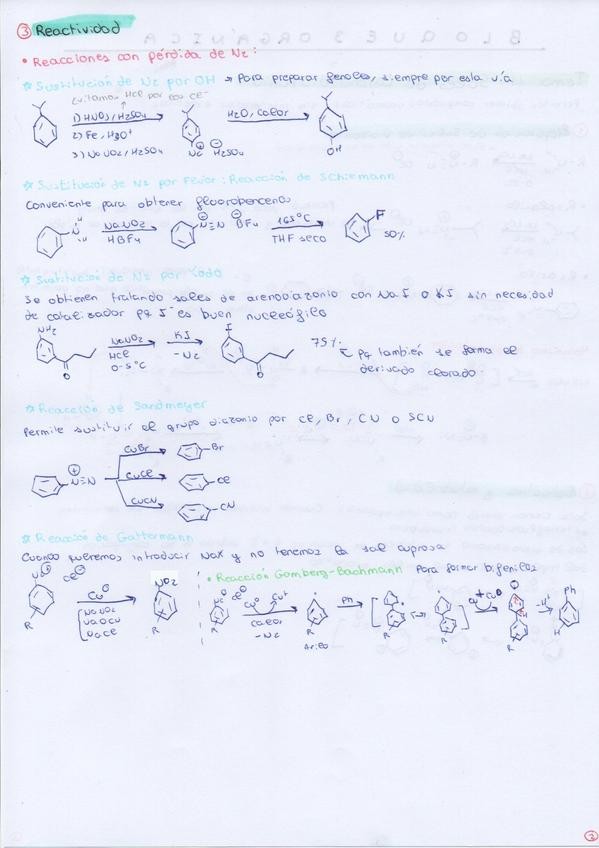 ③ Reactividad
• Reacciones con pérdida de N2:
☆ Sustitución de N2 por OH → Para preparar fenoles, siempre por esta vía
Evitamos HCl por eso Cl⁻
1) HNO3/H2SO4
H2O, calor
2) Fe, H3O⁺
3) NaNO2/H2SO4
OH
☆ Sustitución de N2 por Flúor: Reacción de Schiemann
Conveniente para obtener fluorobenceno
NaNO2
HBF4
N≡N
BF4
165°C
THF seco
F
50%
☆ Sustitución de N2 por Yodo
Se obtienen tratando sales de arenodiazonio con NaI o KI sin necesidad
de catalizador pq I⁻ es buen nucleófilo
NH2
O
NaNO2
HCl
0-5°C
KI
-N2
I
O
75%
pq también se forma el
derivado clorado.
☆ Reacción de Sandmeyer
Permite sustituir el grupo diazonio por Cl, Br, CN o SCN
N≡N
CuBr
Br
CuCl
Cl
CuCN
CN
☆ Reacción de Gattermann
Cuando queremos introducir NaX y no tenemos la sal cuprosa
Cu⁰
NaNO2
NaOCN
NaCl
R
NO2
R
• Reacción Gomberg-Bachmann Para formar bifenilos
Cu⁰
Cu⁺
calor
-N2
R
R
Arilo
Ph
R
-H⁺
Ph
H
3